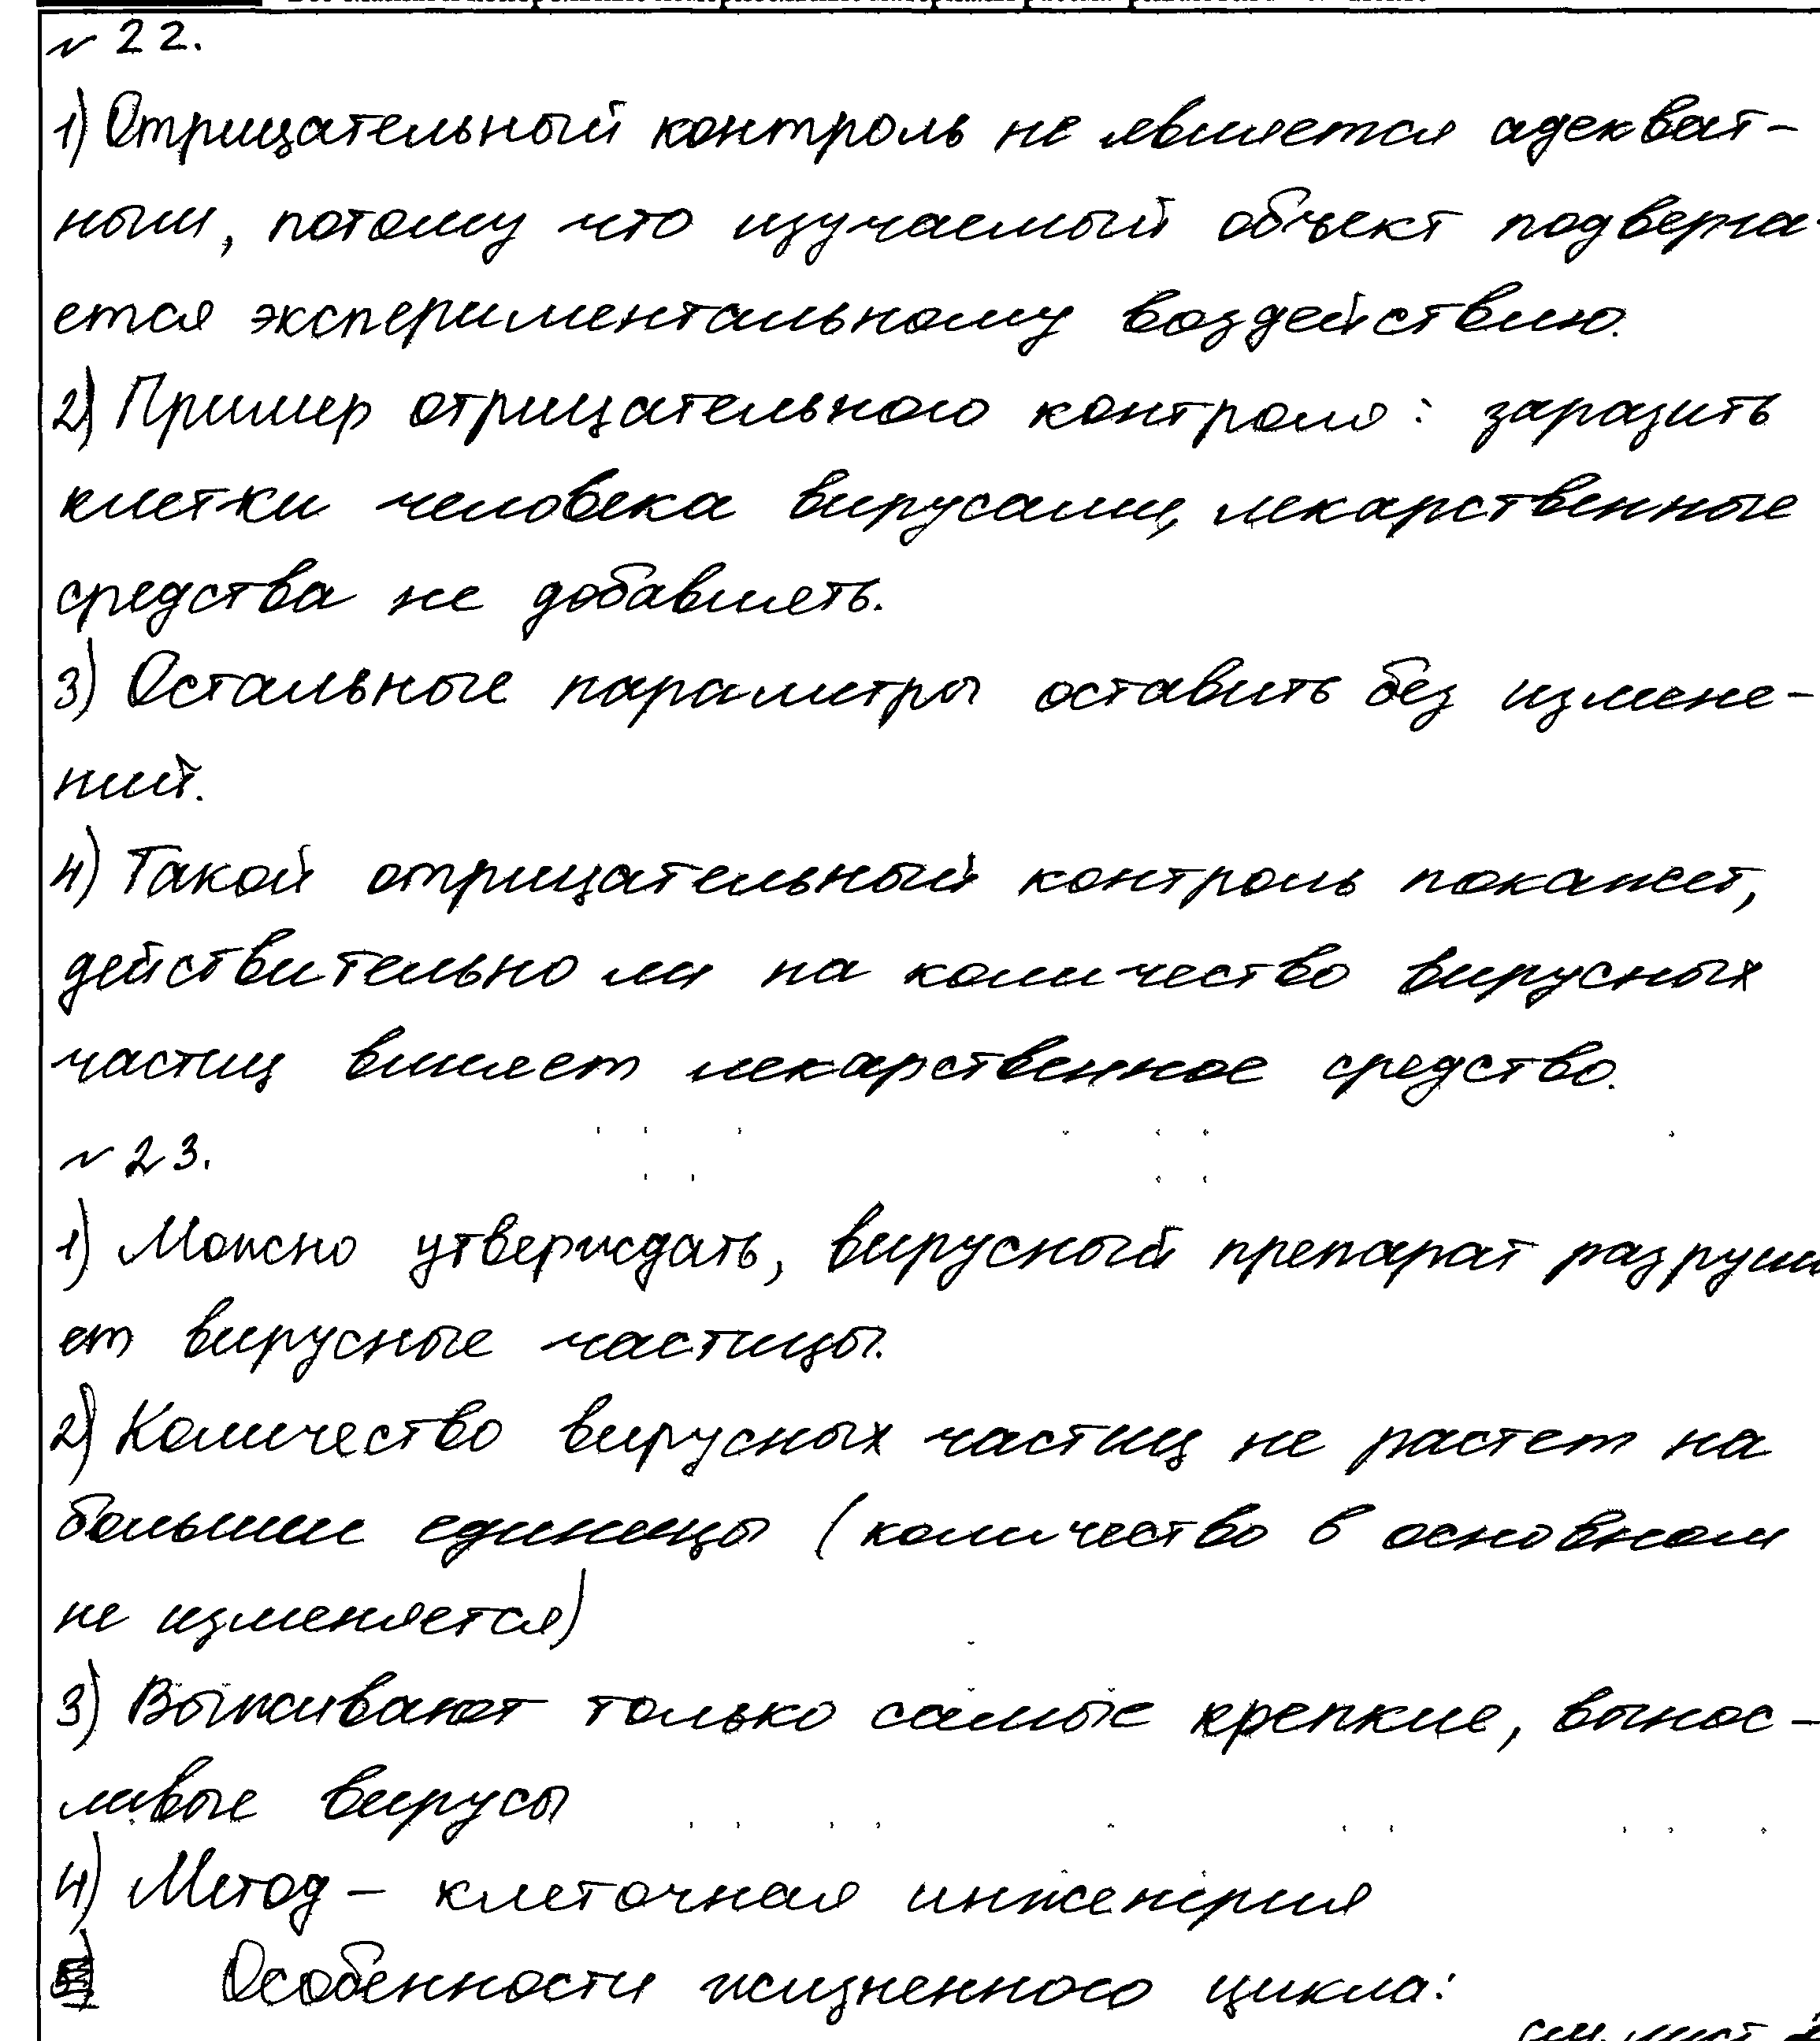 № 22.
1) Отрицательный контроль не является адекват-
ным, потому что изучаемый объект подверга-
ется экспериментальному воздействию.
2) Пример отрицательного контроля: заразить
клетки человека вирусами, лекарственные
средства не добавлять.
3) Остальные параметры оставить без измене-
ний.
4) Такой отрицательный контроль покажет,
действительно ли на количество вирусных
частиц влияет лекарственное средство.
№ 23.
1) Можно утверждать, вирусный препарат разруша
ет вирусные частицы.
2) Количество вирусных частиц не растет на
большие единицы (количество в основном
не изменяется)
3) Выживают только самые крепкие, вынос-
ливые вирусы
4) Метод – клеточная инженерия
Особенности жизненного цикла:
см. лист